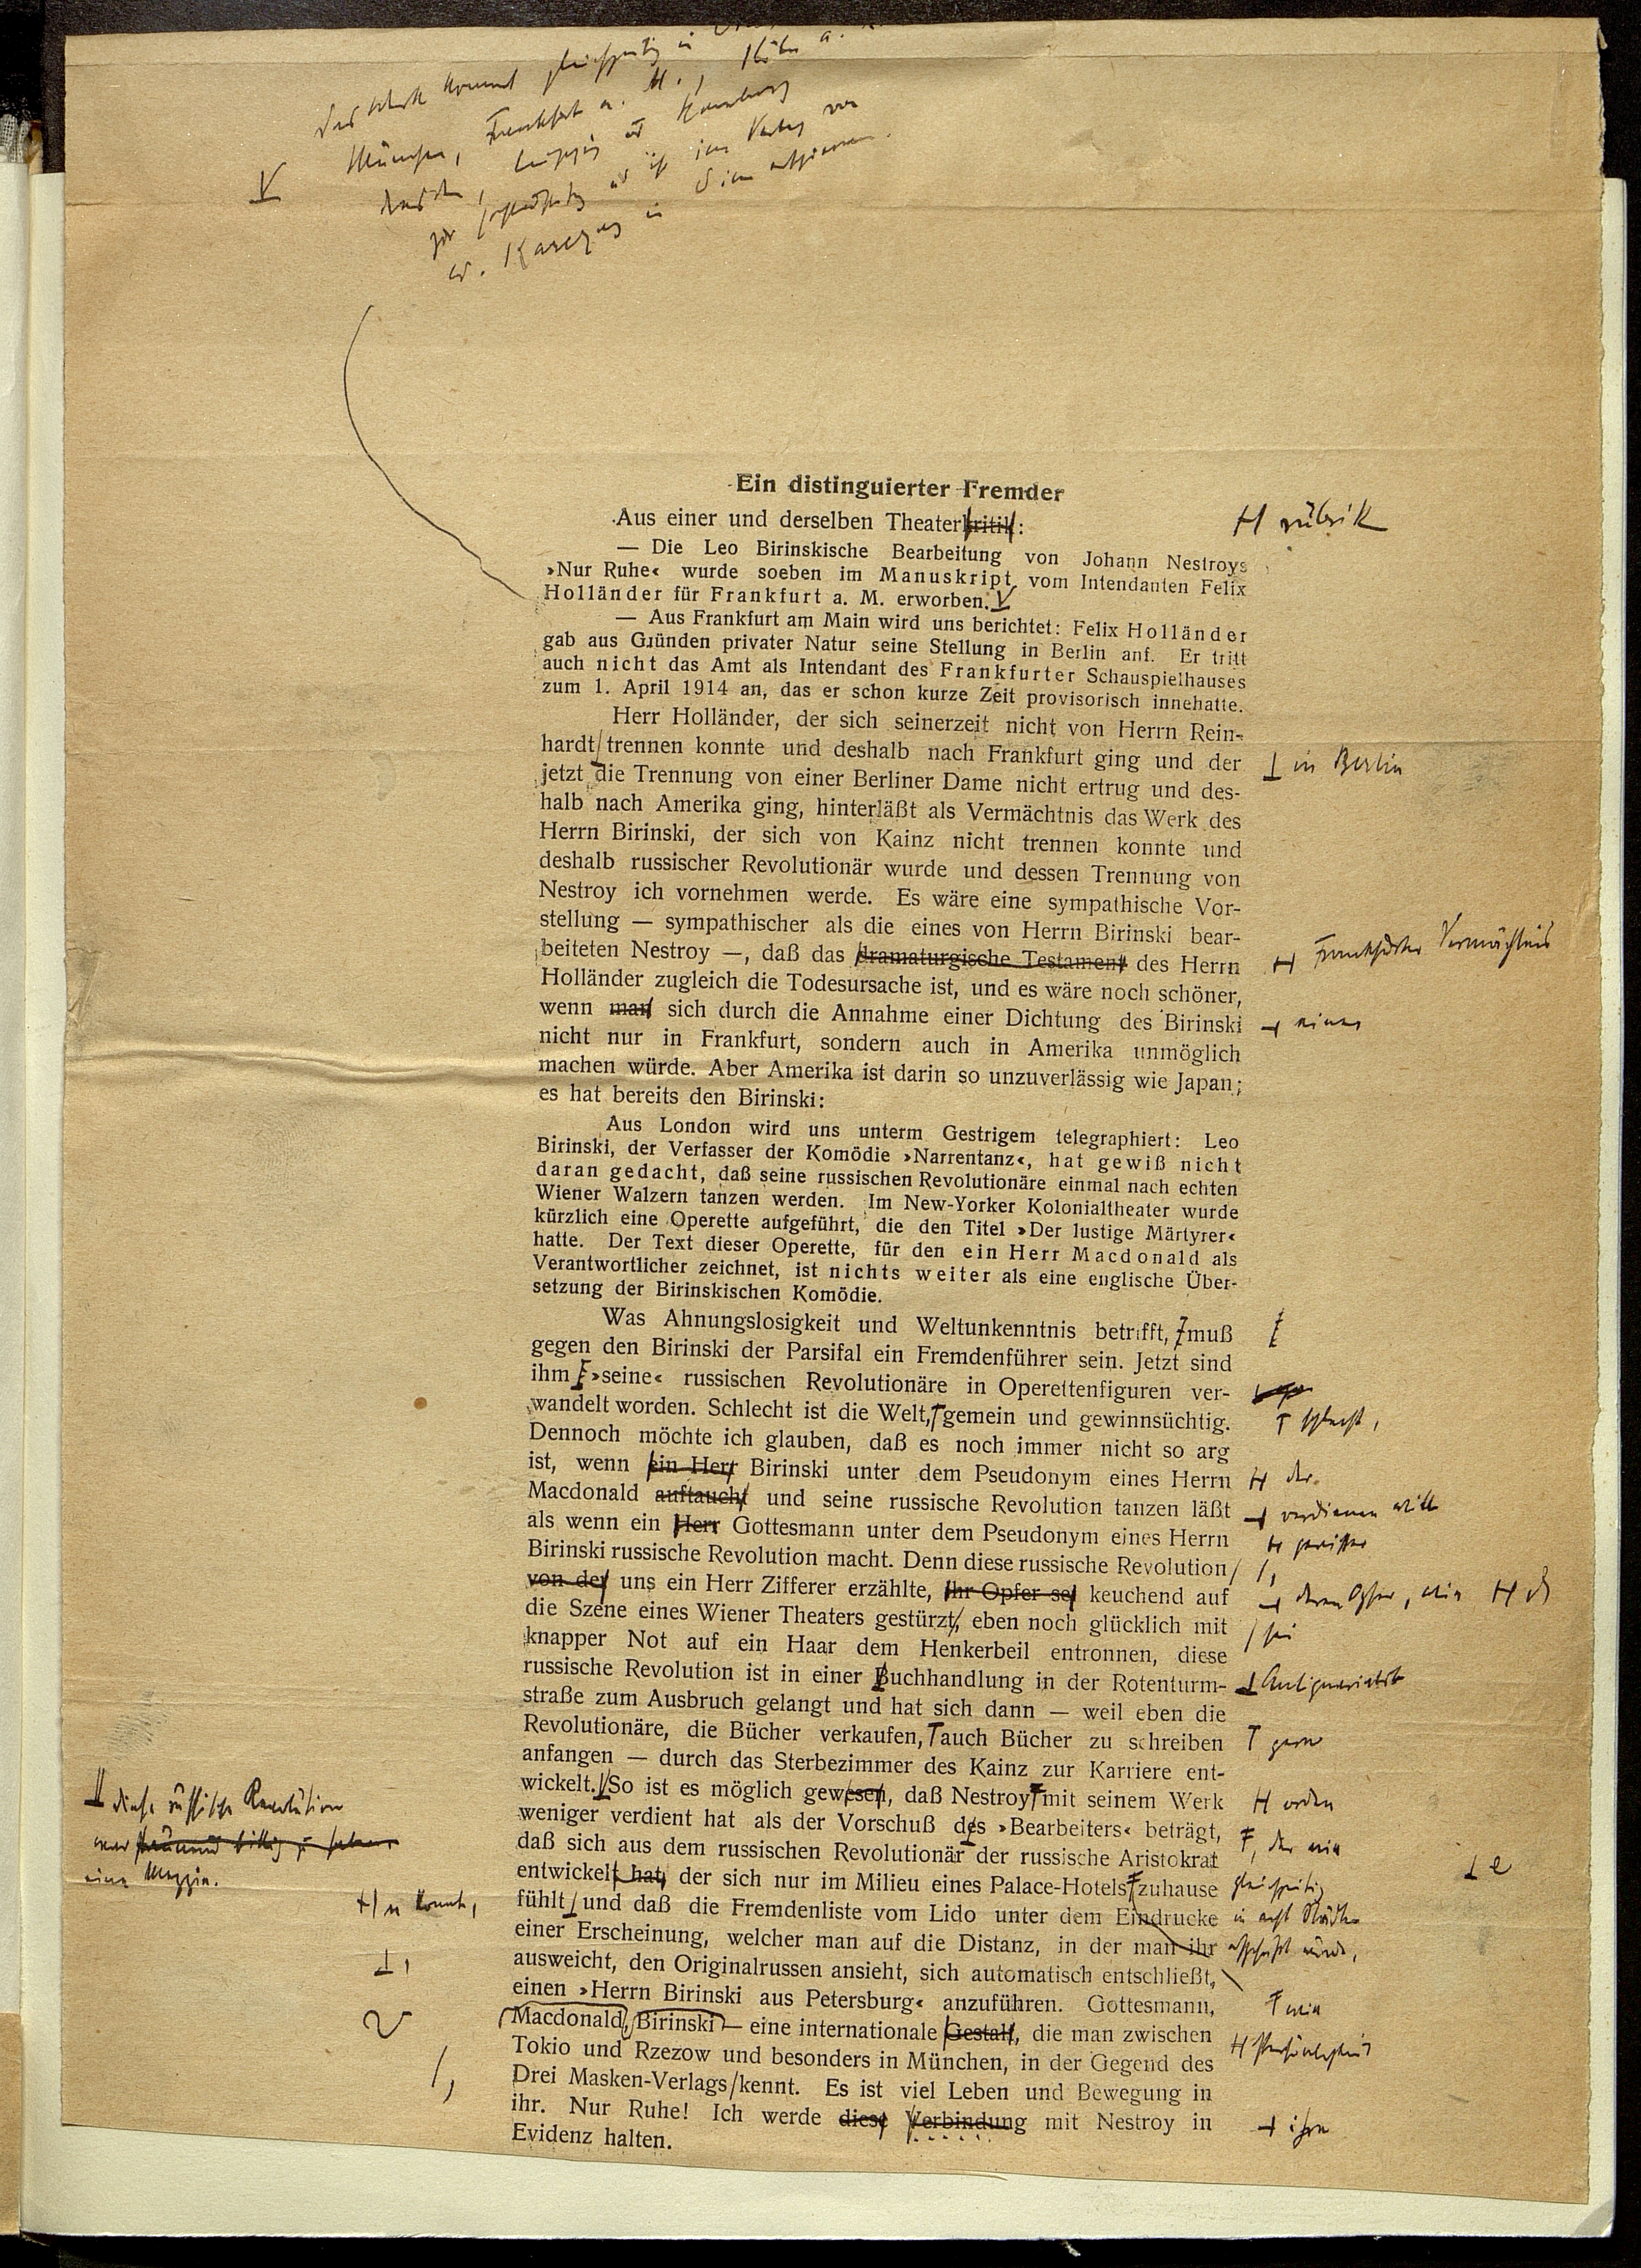 Das Werk kommt gleichzeitig in
München, Frankfurt a. M., Köln a.
Dresden, Leipzig und Hamburg
zur
W. Karczag in Wien
Ein distinguierter Fremder
Aus einer und derselben Theaterkritik:
H rubrik
— Die Leo Birinskische Bearbeitung von Johann Nestroys
»Nur Ruhe« wurde soeben im Manuskript vom Intendanten Felix
Holländer für Frankfurt a. M. erworben.
— Aus Frankfurt am Main wird uns berichtet: Felix Holländer
gab aus Gründen privater Natur seine Stellung in Berlin anf. Er tritt
auch nicht das Amt als Intendant des Frankfurter Schauspielhauses
zum 1. April 1914 an, das er schon kurze Zeit provisorisch innehatte.
Herr Holländer, der sich seinerzeit nicht von Herrn Rein-
hardt trennen konnte und deshalb nach Frankfurt ging und der
in Berlin
jetzt die Trennung von einer Berliner Dame nicht ertrug und des-
halb nach Amerika ging, hinterläßt als Vermächtnis das Werk des
Herrn Birinski, der sich von Kainz nicht trennen konnte und
deshalb russischer Revolutionär wurde und dessen Trennung von
Nestroy ich vornehmen werde. Es wäre eine sympathische Vor-
stellung — sympathischer als die eines von Herrn Birinski bear-
beiteten Nestroy —, daß das dramaturgische Testament des Herrn
Frankfurter Vermächtnis
Holländer zugleich die Todesursache ist, und es wäre noch schöner,
wenn man sich durch die Annahme einer Dichtung des Birinski
einer
nicht nur in Frankfurt, sondern auch in Amerika unmöglich
machen würde. Aber Amerika ist darin so unzuverlässig wie Japan;
es hat bereits den Birinski:
Aus London wird uns unterm Gestrigem telegraphiert: Leo
Birinski, der Verfasser der Komödie »Narrentanz«, hat gewiß nicht
daran gedacht, daß seine russischen Revolutionäre einmal nach echten
Wiener Walzern tanzen werden. Im New-Yorker Kolonialtheater wurde
kürzlich eine Operette aufgeführt, die den Titel »Der lustige Märtyrer«
hatte. Der Text dieser Operette, für den ein Herr Macdonald als
Verantwortlicher zeichnet, ist nichts weiter als eine englische Über-
setzung der Birinskischen Komödie.
Was Ahnungslosigkeit und Weltunkenntnis betrifft, muß
gegen den Birinski der Parsifal ein Fremdenführer sein. Jetzt sind
ihm »seine« russischen Revolutionäre in Operettenfiguren ver-
wandelt worden. Schlecht ist die Welt, gemein und gewinnsüchtig.
schlecht,
Dennoch möchte ich glauben, daß es noch immer nicht so arg
ist, wenn ein Herr Birinski unter dem Pseudonym eines Herrn
der
Macdonald auftaucht und seine russische Revolution tanzen läßt
verdienen will
als wenn ein Herr Gottesmann unter dem Pseudonym eines Herrn
gewisser
Birinski russische Revolution macht. Denn diese russische Revolution
von der uns ein Herr Zifferer erzählte, ihr Opfer sei keuchend auf
deren Opfer, wie
die Szene eines Wiener Theaters gestürzt, eben noch glücklich mit
sei
knapper Not auf ein Haar dem Henkerbeil entronnen, diese
russische Revolution ist in einer Buchhandlung in der Rotenturm-
Antiquariats
straße zum Ausbruch gelangt und hat sich dann — weil eben die
Revolutionäre, die Bücher verkaufen, auch Bücher zu schreiben
gern
anfangen — durch das Sterbezimmer des Kainz zur Karriere ent-
wickelt. So ist es möglich gewesen, daß Nestroy mit seinem Werk
orden
diese russische Revolution
war
eine Mezzie.
weniger verdient hat als der Vorschuß des »Bearbeiters« beträgt,
, der nie
daß sich aus dem russischen Revolutionär der russische Aristokrat
e
entwickelt hat, der sich nur im Milieu eines Palace-Hotels zuhause
gleichzeitig
n konnte,
fühlt und daß die Fremdenliste vom Lido unter dem Eindrucke
in acht Städten
einer Erscheinung, welcher man auf die Distanz, in der man ihr
aufgeführt wurde,
ausweicht, den Originalrussen ansieht, sich automatisch entschließt,
einen »Herrn Birinski aus Petersburg« anzuführen. Gottesmann,
Macdonald, Birinski — eine internationale Gestalt, die man zwischen
Persönlichkeit
Tokio und Rzezow und besonders in München, in der Gegend des
Drei Masken-Verlags kennt. Es ist viel Leben und Bewegung in
ihr. Nur Ruhe! Ich werde diese Verbindung mit Nestroy in
ihre
Evidenz halten.